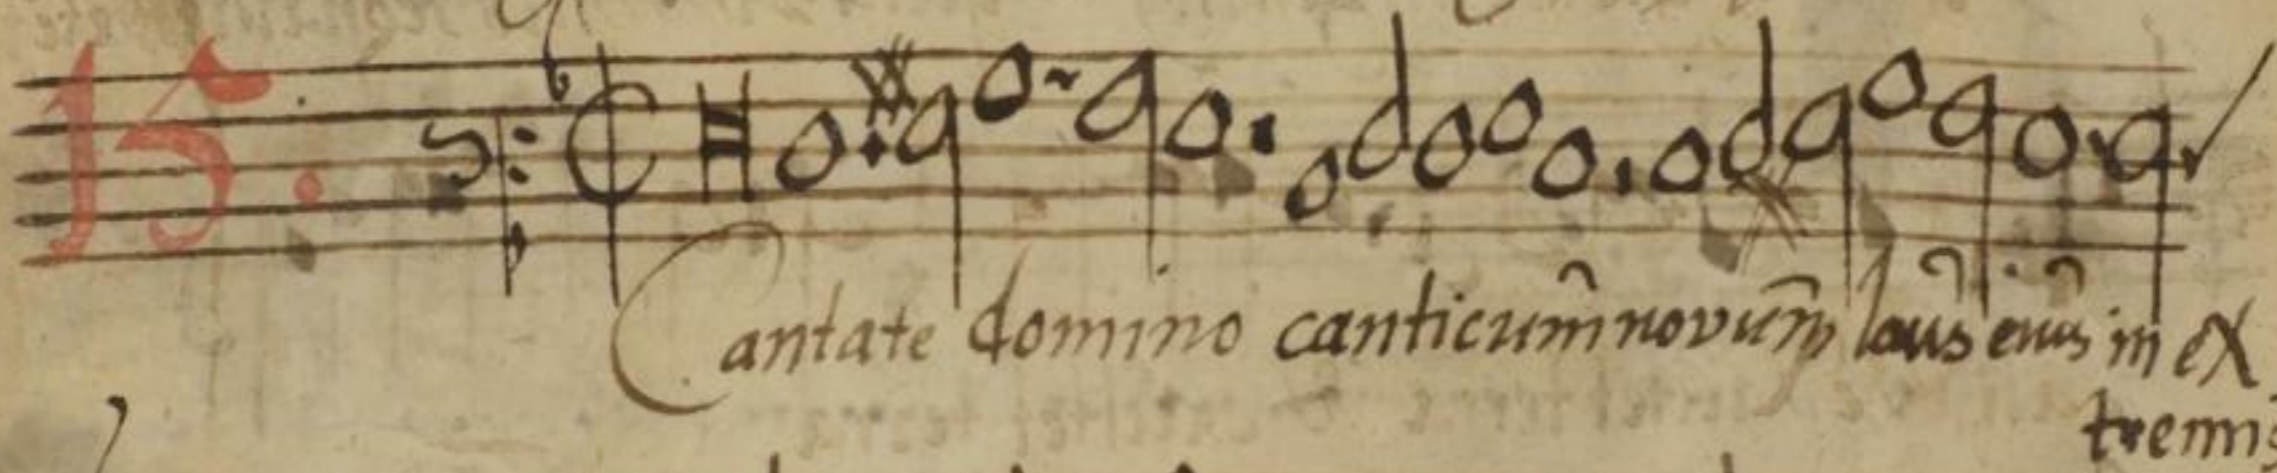 15.
Cantate domino canticum̃ novum̃ laus̃ eius̃ in ex
tremis